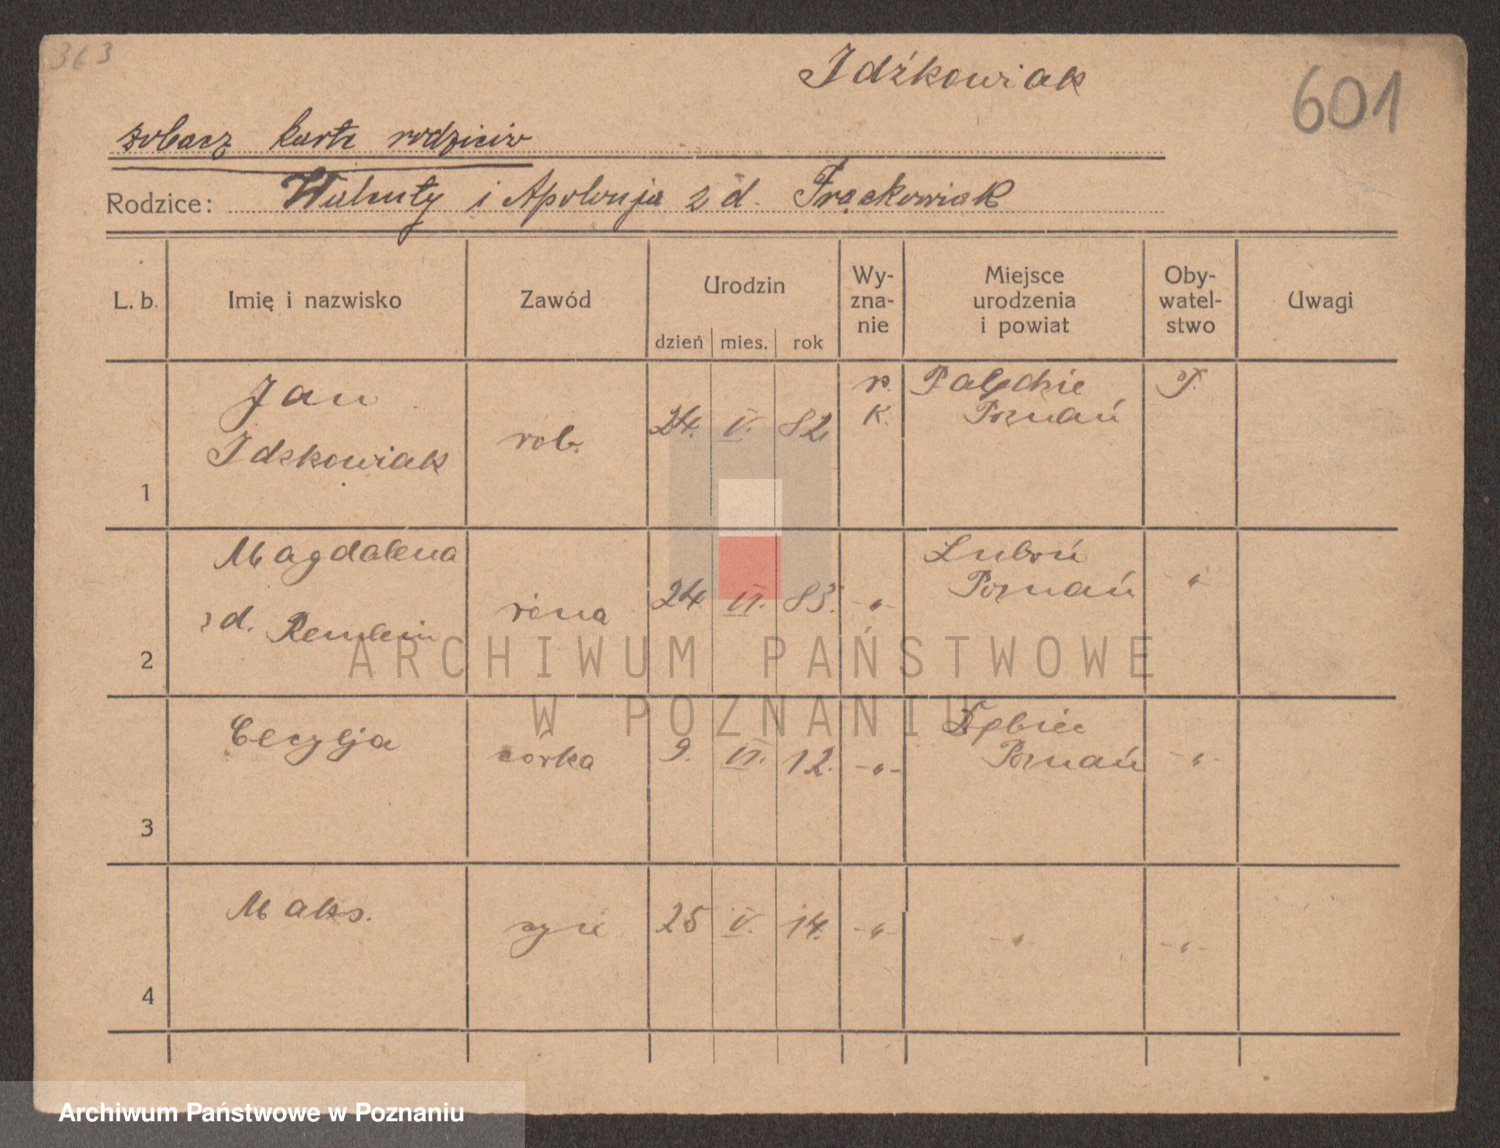 363
Idźkowiak
601
zobacz kartę rodziców
Rodzice: Walenty i Apolonja z d. Frąckowiak
L. b. Imię i nazwisko Zawód Urodzin Wy-zna-nie Miejsce urodzenia i powiat Oby-watel-stwo Uwagi
dzień mies. rok
1 Jan Idzkowiak rob. 24. V. 82. r. K. Palędzie Poznań P.
2 Magdalena z d. żona 24 VI. 83. -„- Luboń Poznań „
3 Cecylja córka 9. VI. 12. -„- Dębiec Poznań -„-
4 Maks. syn 25 V. 14. -„- -„- -„-
ARCHIWUM PAŃSTWOWE
W POZNANIU
Archiwum Państwowe w Poznaniu